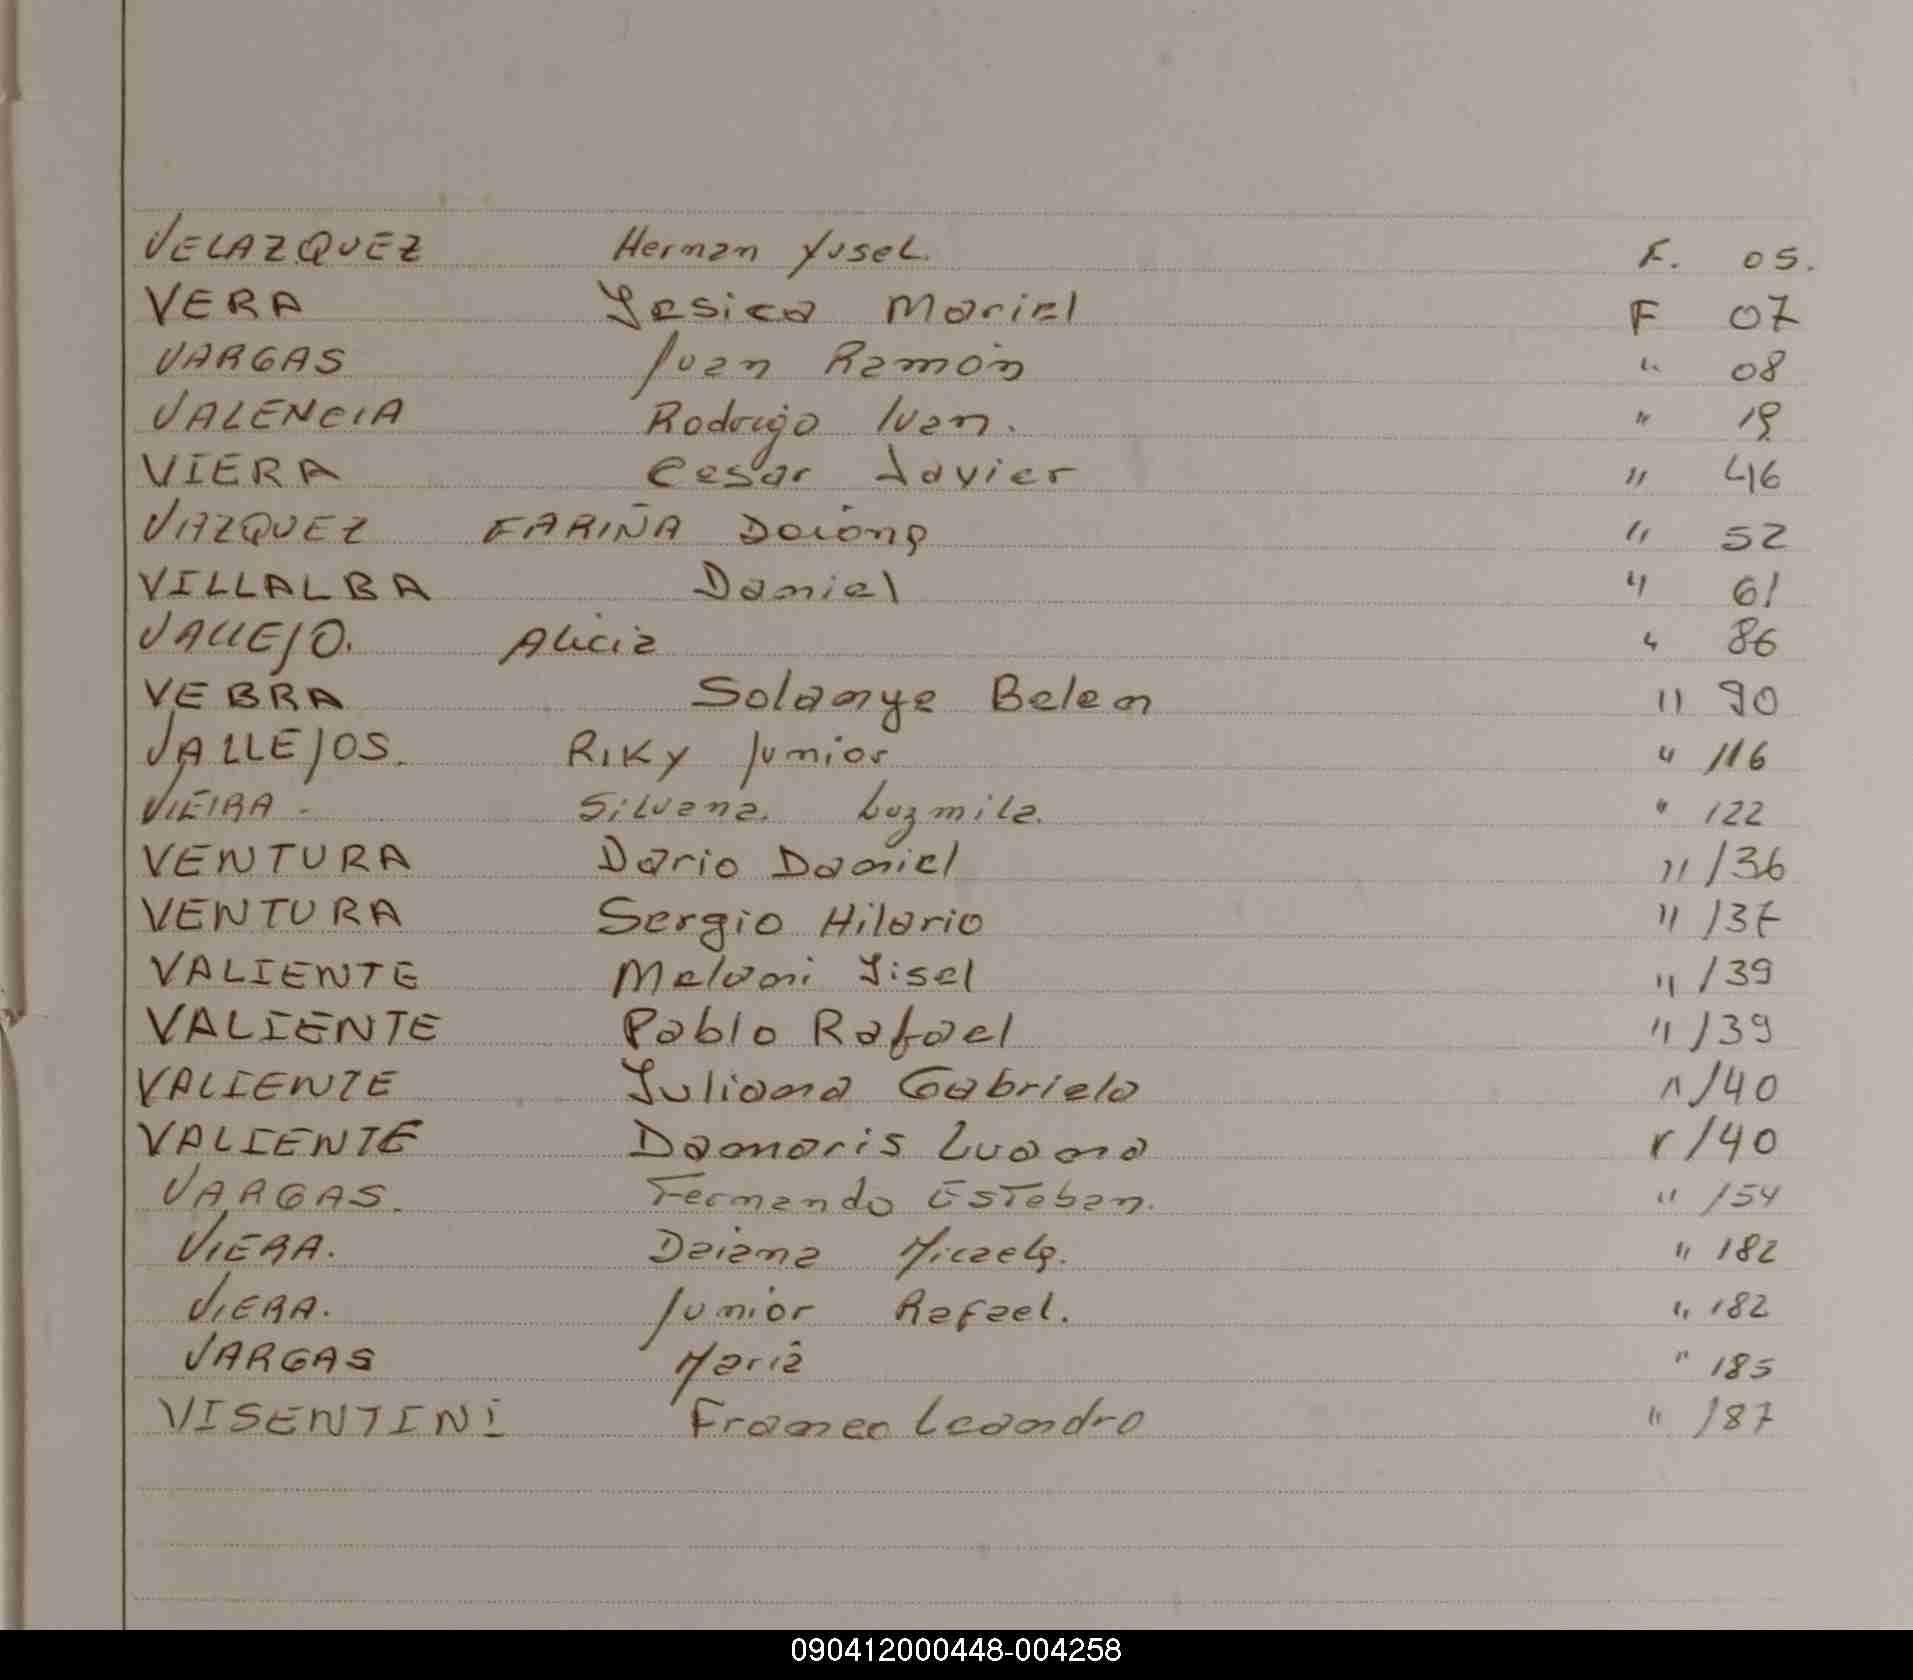 VELAZQUEZ Hernan Yusel. F. 05.
VERA Yesica Mariel F 07
VARGAS Juan Ramón " 08
VALENCIA Rodrigo Ivan. " 19
VIERA Cesar Javier " 46
VAZQUEZ FARIÑA Daiana " 52
VILLALBA Daniel " 61
VALLEJO. Alicia " 86
VEBRA Solanye Belen " 90
VALLEJOS. Riky Junior " 116
VIEIRA - Silvana. Luzmila. " 122
VENTURA Dario Daniel " 136
VENTURA Sergio Hilario " 137
VALIENTE Melani Yisel " 139
VALIENTE Pablo Rafael " 139
VALIENTE Juliana Gabriela " 140
VALIENTE Damaris Luana " 140
VARGAS. Fernando Esteban. " 154
VIERA. Daiana Micaela. " 182
VIERA. Junior Rafael. " 182
VARGAS Maria " 185
VISENTINI Franco Leandro " 187
090412000448-004258